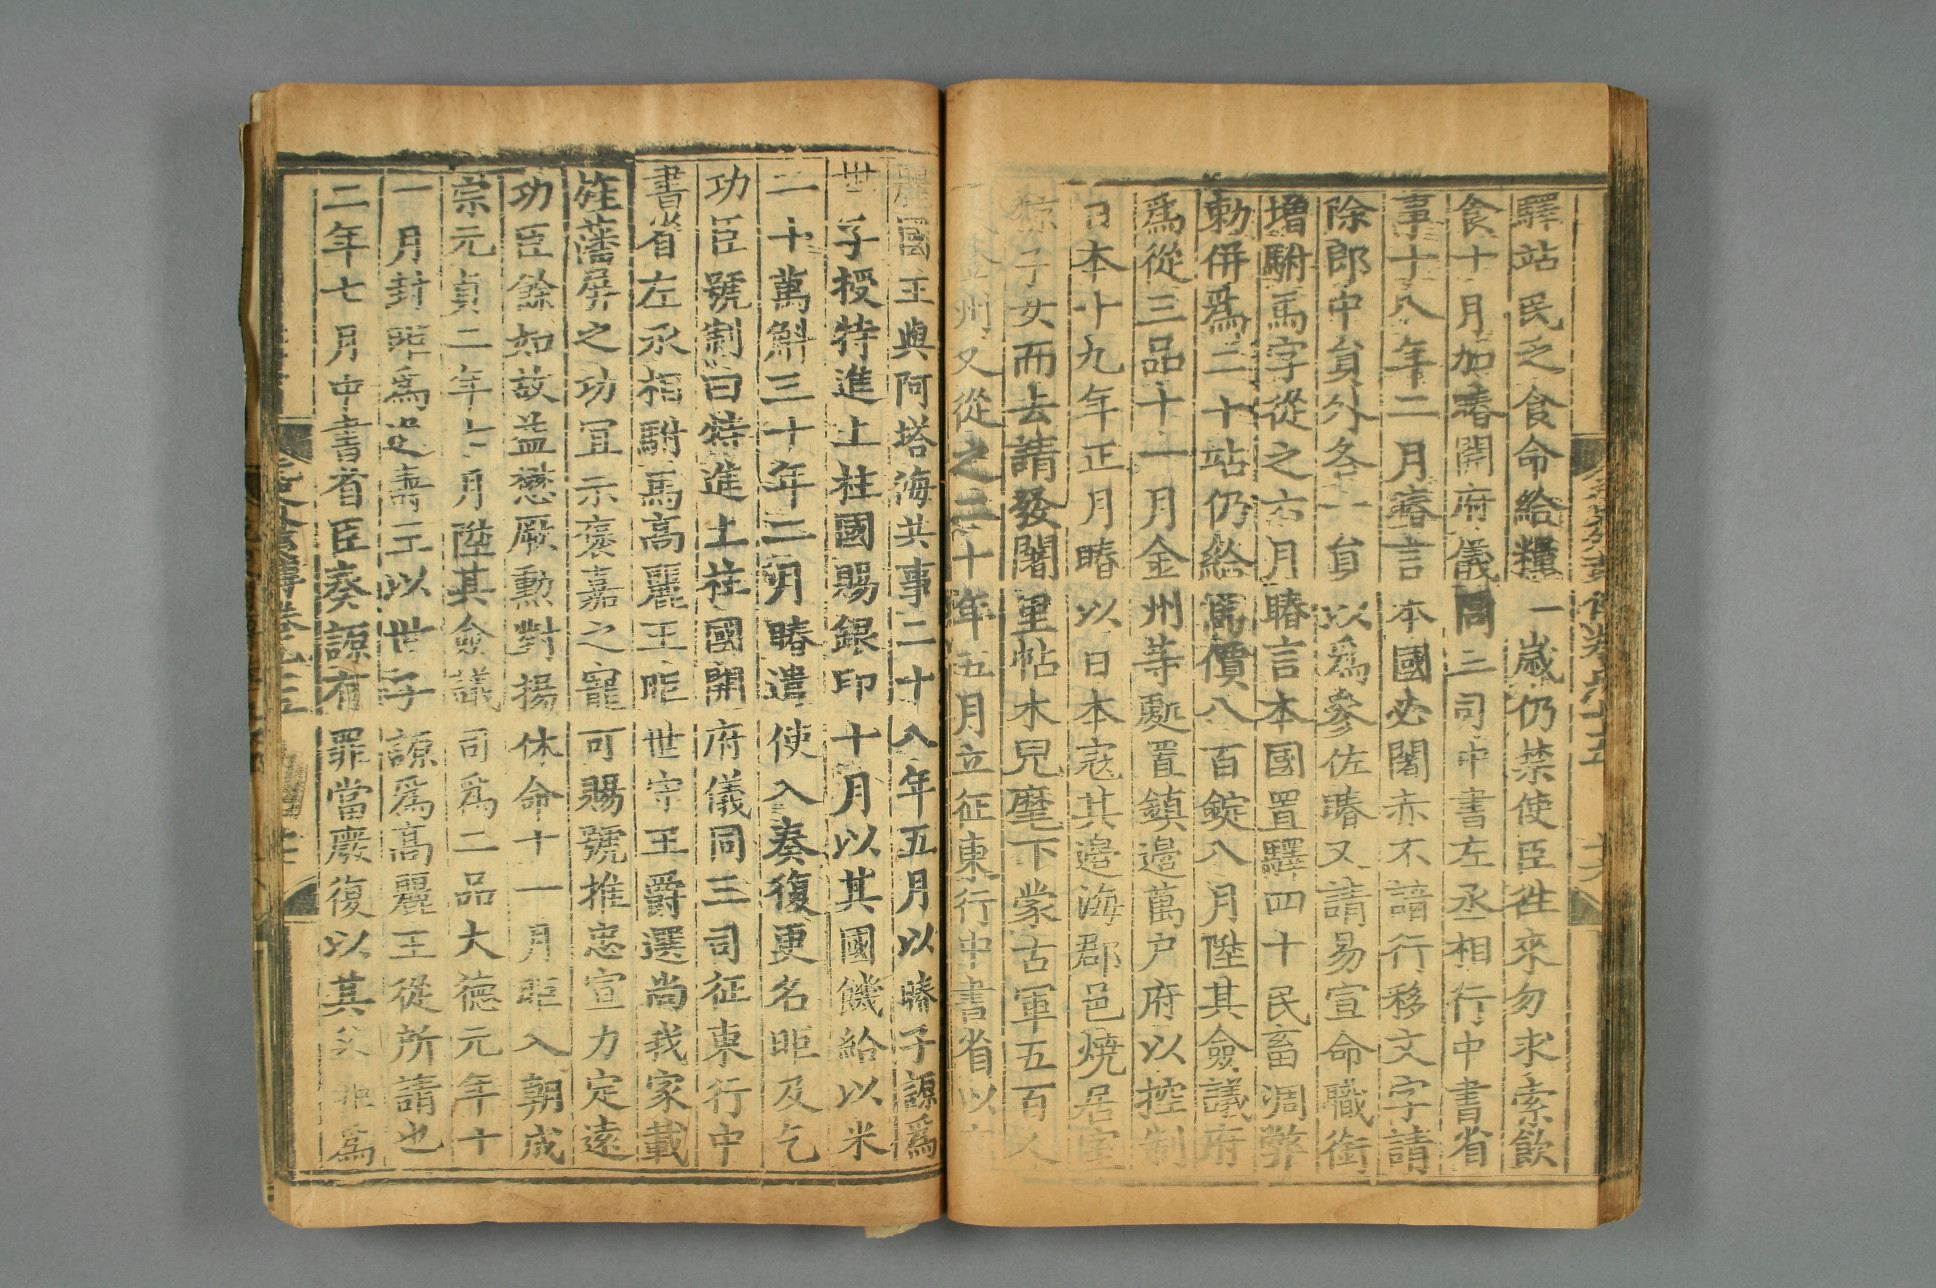 驛站民乏食命給糧一歲仍禁使臣徃來勿求索飲
食十月加𥈠開府儀同三司中書左丞相行中書省
事十八年二月𥈠言本國必闍赤不諳行移文字請
除郎中貟外各一貟以爲參佐𥈠又請易宣命職銜
增駙馬字從之六月𥈠言本國置驛四十民畜凋弊
勅併爲二十站仍給馬價八百錠八月陞其僉議府
爲從三品十一月金州等處置鎮邊萬户府以控制
日本十九年正月𥈠以日本寇其邊海郡邑焼居室
掠子女而去請發闍里帖木兒麾下蒙古軍五百人
金州又從之二十年五月立征東行中書省以
麗國王與阿塔海共事二十八年五月以𥈠子謜爲
世子授特進上柱國賜銀印十月以其國饑給以米
二十萬斛三十年二月𥈠遣使入奏復更名昛及乞
功臣號制曰特進上柱國開府儀同三司征東行中
書省左丞相駙馬高麗王昛世守王爵選尚我家載
旌藩屏之功冝示褒嘉之寵可賜號推忠宣力定遠
功臣餘如故益懋厥勳對揚休命十一月昛入朝成
宗元貞二年七月陞其僉議司爲二品大德元年十
一月封昛爲逸壽王以世子謜爲高麗王從所請也
二年七月中書省臣奏謜有罪當廢復以其父昛爲